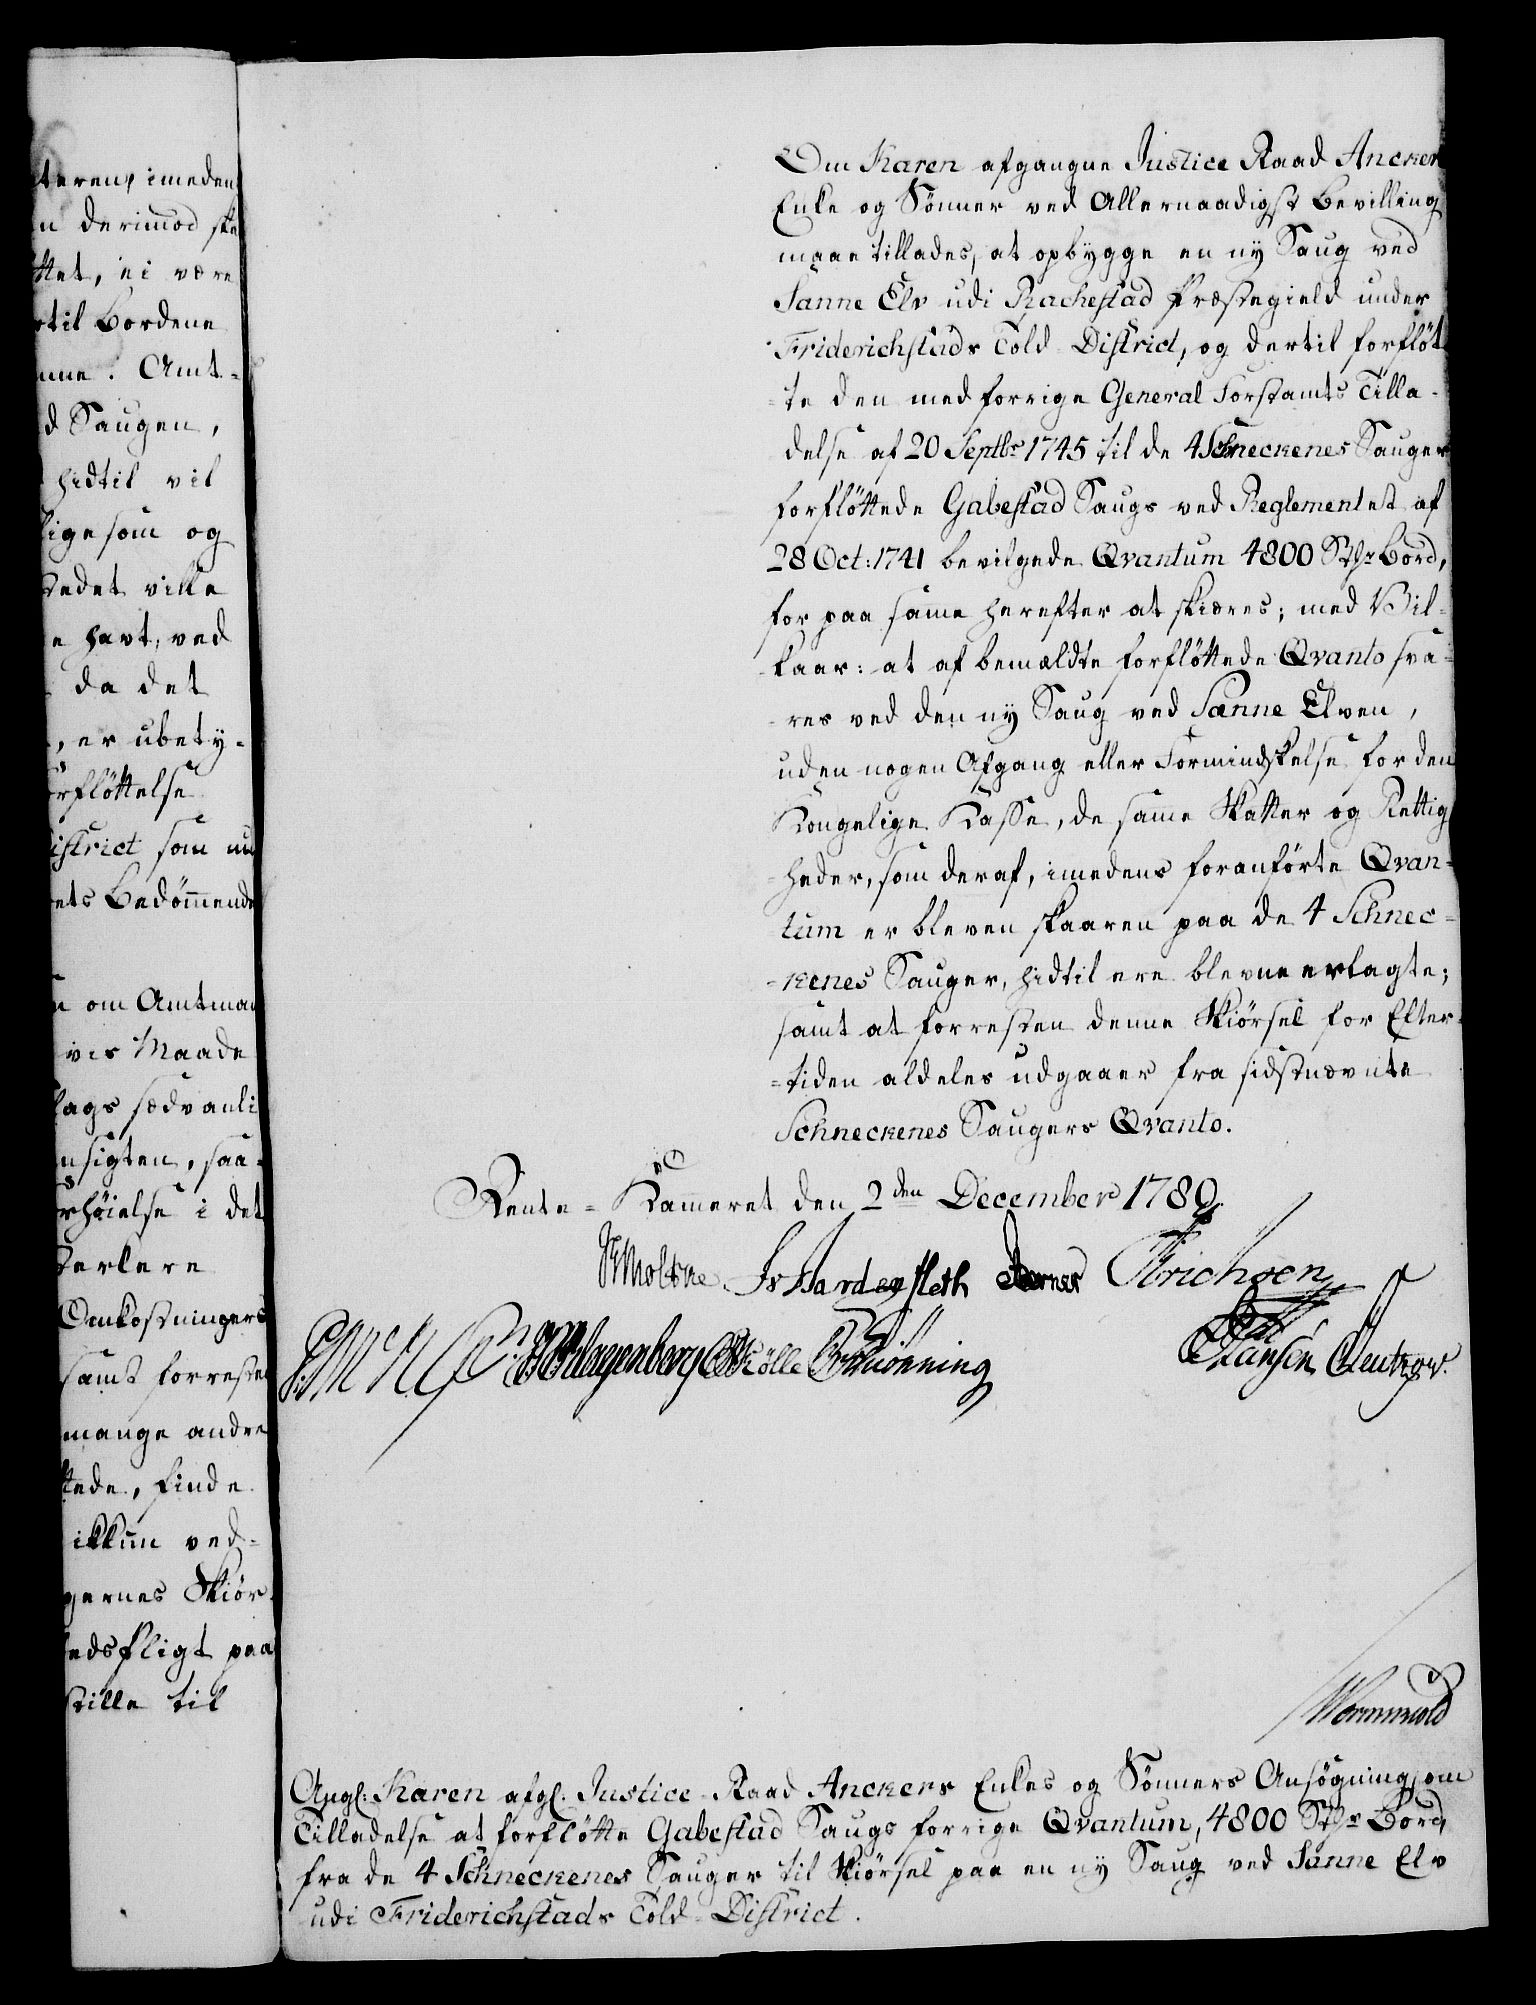 teren, imeden
n derimod ska
ttet, ei være
rtil Bordene
nne. Amt-
d Saugen,
hidtil vil
lige som og
stedet ville
e havt, ved
da det
, er ubety-
orfløttelse
istrict som nu
ets Bedømmende
e om Amtman
vis Maade
lags sædvanli
nsigten, saa-
rhøielse i det
terlere
Omkostninger
samt forresten
mange andre
stede, finde
ikkun ved-
gernes Skiør-
edsfligt paa
stille til
Om Karen afgangne Justice Raad Ancker
Enke og Sönner ved Allernaadigst Bevilling
maae tillades, at opbygge en ny Saug ved
Sanne Elv udi Rachestad Præstegield under
Friderichstads Told-District, og dertil forflöt-
-te den med forrige General Forstamts Tilla-
delse af 20 Septbr 1745 til de 4 Schneckenes Sauger
forflöttede Gabestad Saugs ved Reglementet af
28 Oct: 1741 bevilgede Qvantum 4800 Stkr Bord,
for paa samme herefter at skiæres; med Vil-
-kaar: at af bemældte forflöttede Qvanto sva-
-res ved den ny Saug ved Sanne Elven,
uden nogen Afgang eller Formindskelse for den
Kongelige Kasse, de samme Skatter og Rettig
-heder, som deraf, imedens foranförte Qvan-
tum er bleven skaaren paa de 4 Schnec-
-kenes Sauger, hidtil ere blevne erlagte;
samt at forresten denne Skiörsel for Efter-
-tiden aldeles udgaaer fra sidstnævnte
Schneckenes Saugers Qvanto.
Rente-Kammeret den 2den December 1789.
Moltke. Hardenfleth Erichsen
Wleugenberg Rönning
Hansen
Wormwold
Angl: Karen afgl. Justice-Raad Anckers Enkes og Sönners Ansögning, om
Tilladelse at forflötte Gabestad Saugs forrige Qvantum, 4800 Stkr Bord,
fra de 4 Schneckenes Sauger til Skiörsel paa en ny Saug ved Sanne Elv
udi Friderichstads Told-District.